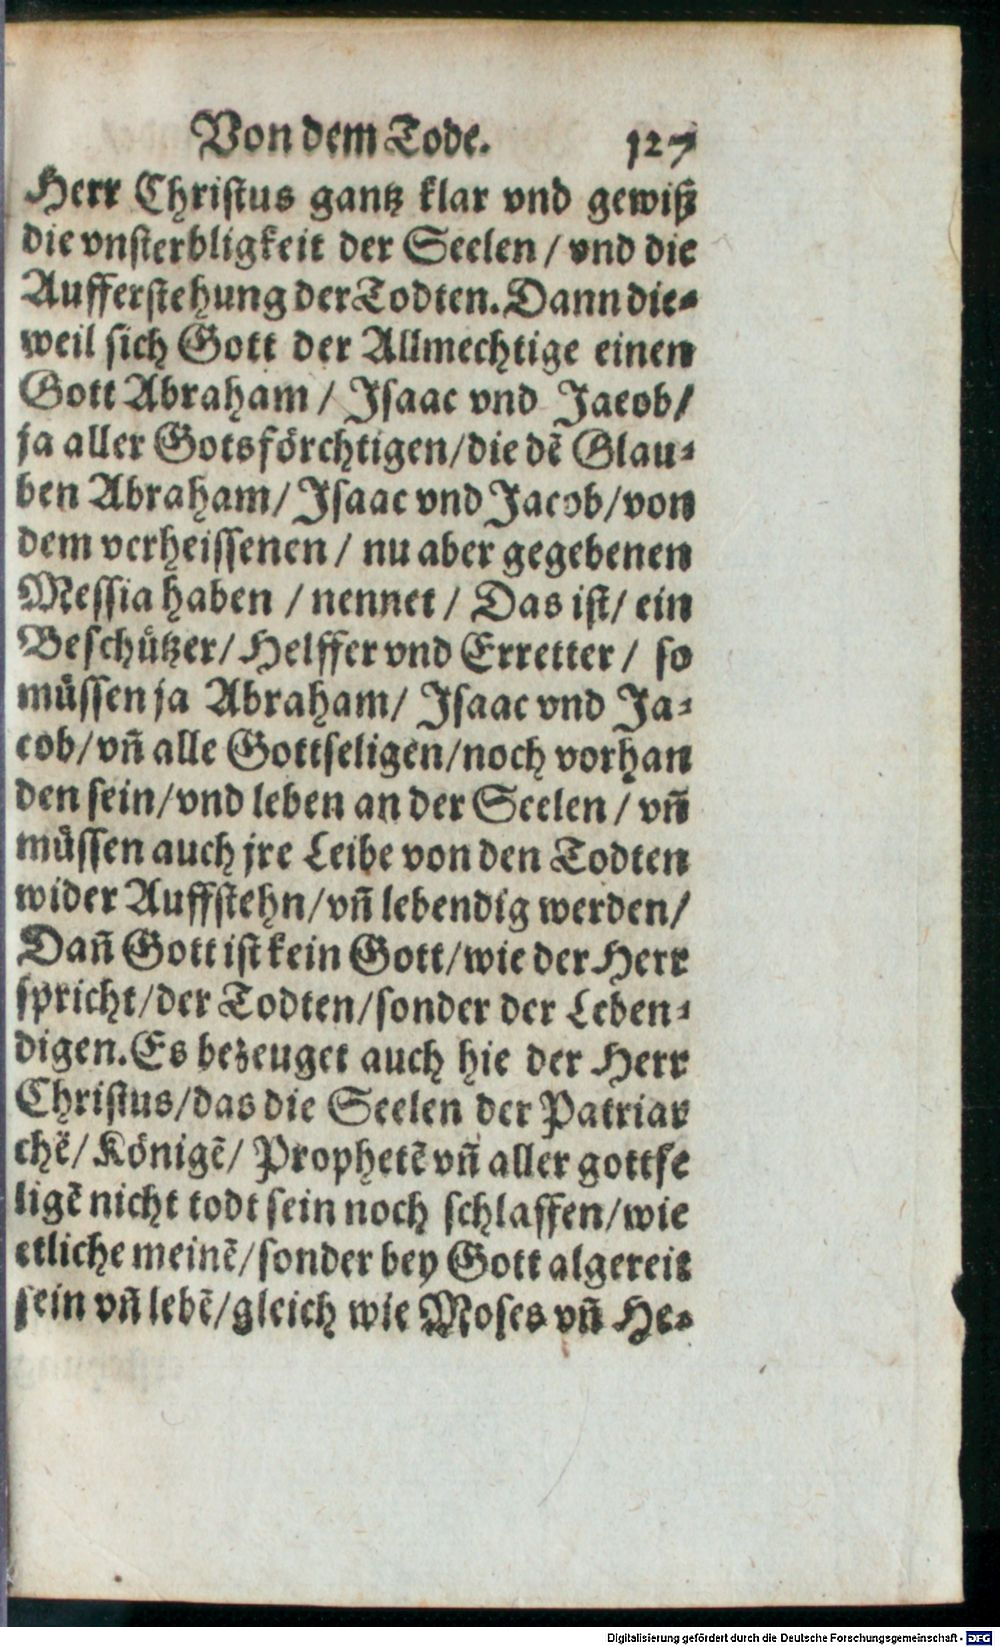 Von dem Tode. 127
Herr Christus gantz klar vnd gewiß
die vnsterbligkeit der Seelen / vnd die
Aufferstehung der Todten. Dann die-
weil sich Gott der Allmechtige einen
Gott Abraham / Isaac vnd Jacob /
ja aller Gotsförchtigen / die dē Glau-
ben Abraham / Isaac vnd Jacob / von
dem verheissenen / nu aber gegebenen
Messia haben / nennet / Das ist / ein
Beschützer / Helffer vnd Erretter / so
müssen ja Abraham / Isaac vnd Ja-
cob / vn̄ alle Gottseligen / noch vorhan
den sein / vnd leben an der Seelen / vn̄
müssen auch jre Leibe von den Todten
wider Auffstehn / vn̄ lebendig werden /
Dan̄ Gott ist kein Gott / wie der Herr
spricht / der Todten / sonder der Leben-
digen. Es bezeuget auch hie der Herr
Christus / das die Seelen der Patriar
chē / Königē / Prophetē vn̄ aller gottse
ligē nicht todt sein noch schlaffen / wie
etliche meinē / sonder bey Gott algereit
sein vn̄ lebē / gleich wie Moses vn̄ He-
Digitalisierung gefördert durch die Deutsche Forschungsgemeinschaft - DFG